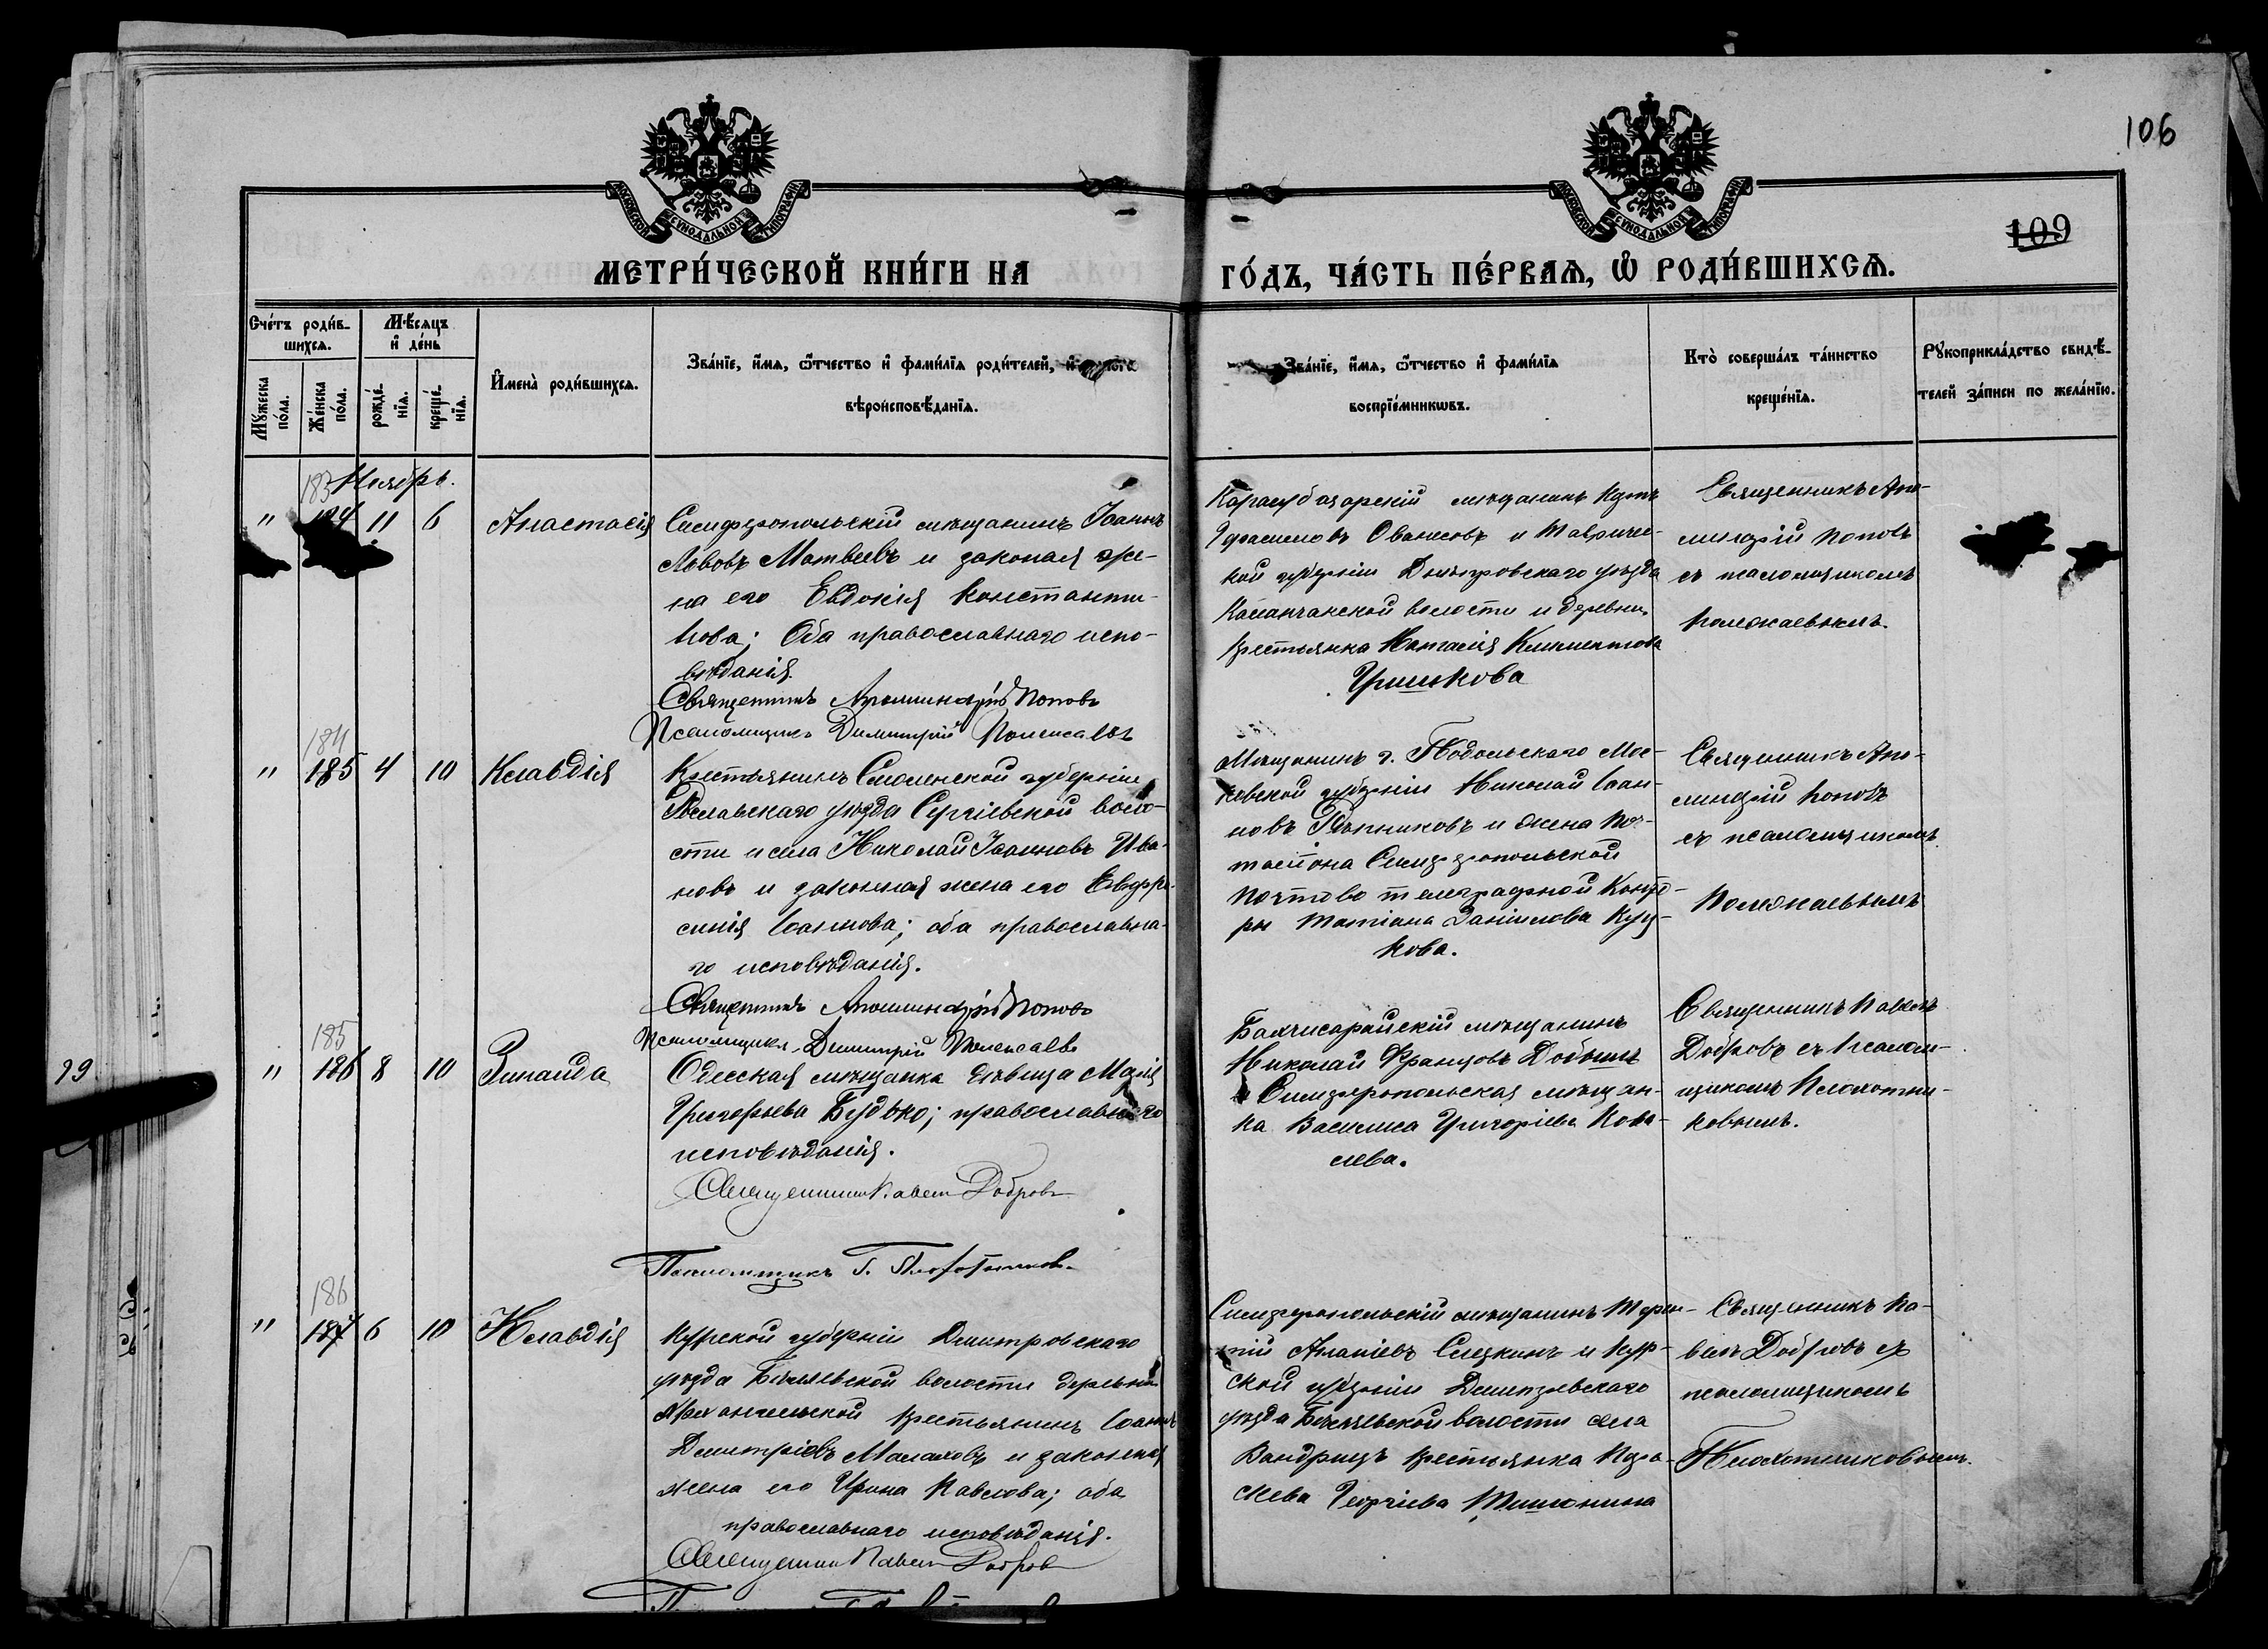 106
109
МОСКОВСКОЙ СУНОДАЛЬНОЙ ТИПОГРАФІИ
МОСКОВСКОЙ СУНОДАЛЬНОЙ ТИПОГРАФІИ
МЕТРИ́ЧЕСКОЙ КНИ́ГИ НА
ГО́ДЪ, ЧА́СТЬ ПЕ́РВАѦ, Ѡ҆ РОДИ́ВШИХСѦ.
Сче́тъ роди́в-
шихсѧ.
Мꙋжеска по́ла.
Же́нска по́ла.
Мѣ́сѧцъ
и҆ де́нь
рожде́нїѧ.
креще́нїѧ.
И҆мена̀ роди́вшихсѧ.
Зва́нїе, и҆́мѧ, ѻ҆́тчество и҆ фами́лїѧ роди́телей, и҆
вѣроисповѣ́данїѧ.
Зва́нїе, и҆́мѧ, ѻ҆́тчество и҆ фами́лїѧ
воспрїе́мникѡвъ.
Кто̀ соверша́лъ та́инство
креще́нїѧ.
Рꙋкоприкла́дство свидѣ́-
телей за́писи по жела́нїю.
183 Ноябрь.
" 184 11 6 Анастасія
Симферопольскій мѣщанинъ Іоаннъ
Львовъ Матвеевъ и законая же-
на его Евдокія Константи-
нова; Оба православнаго испо-
вѣданія.
Священникъ Аполинарій Поповъ
Псаломщикъ Димитрій
Карасубазарскій мѣщанинъ
Овансовъ и Тавриче-
кой губерніи Днѣпровскаго уѣзда
Каланчакской волости и деревни
крестьянка Наталія Климентова
Гришкова
Священникъ Апо-
линарій Поповъ
съ псаломщикомъ
184
" 185 4 10 Клавдія
Крестьянинъ Смоленской губерніи
Рославскаго уѣзда Сергіевской воло-
сти и села Николай Іоанновъ Ива-
новъ и законная жена его Евфро-
синія Іоаннова; оба православна-
го исповѣданія.
Священникъ Аполинарій Поповъ
Псаломщикъ Димитрій
Мѣщанинъ г. Подольскаго Мос-
ковской губерніи Николай Іоан-
новъ Рѣпниковъ и жена поч-
таліона Симферопольской
Почтово телеграфной Конто-
ры Татіана Даніилова Куц-
кова.
Священникъ Апо-
линарій Поповъ
съ псаломщикомъ
185
99
" 186 8 10 Зинаида
Одесская мѣщанка дѣвица Марія
Григорьева Будько; православнаго
исповѣданія.
Священникъ Павелъ Добровъ
Псаломщикъ Г. Плохотниковъ
Бахчисарайскій мѣщанинъ
Николай Францовъ
и Симферопольская мѣщан-
ка Василиса Григорьева Кова-
лева.
Священникъ Павелъ
Добровъ съ Псалом-
щикомъ Плохотни-
ковымъ.
186
" 187 6 10 Клавдія
Курской губерніи Дмитровскаго
уѣзда волости деревни
Архангельской крестьянинъ Іоаннъ
Димитріевъ Малаховъ и законная
жена его Ирина Павлова; оба
православнаго исповѣданія.
Священникъ Павелъ Добровъ
Симферопольскій мѣщанинъ Терен-
тій Ананіевъ и Кур-
ской губерніи Дмитріевскаго
уѣзда волости села
крестьянка
Георгіева
Священникъ Па-
велъ Добровъ съ
псаломщикомъ
Плохотниковымъ.